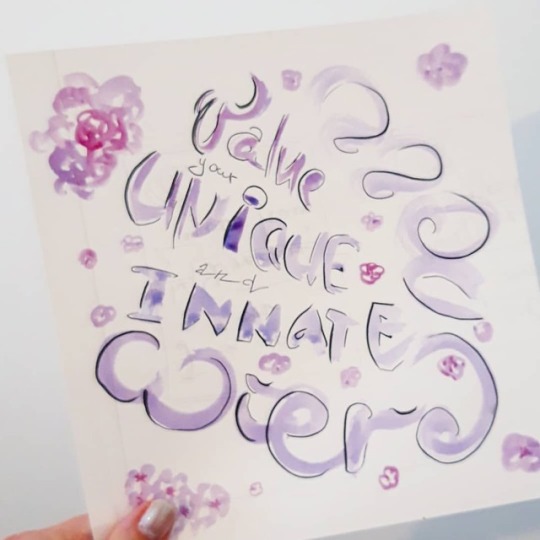 Value
your
UNiQUE
and
INNATE
Wierd